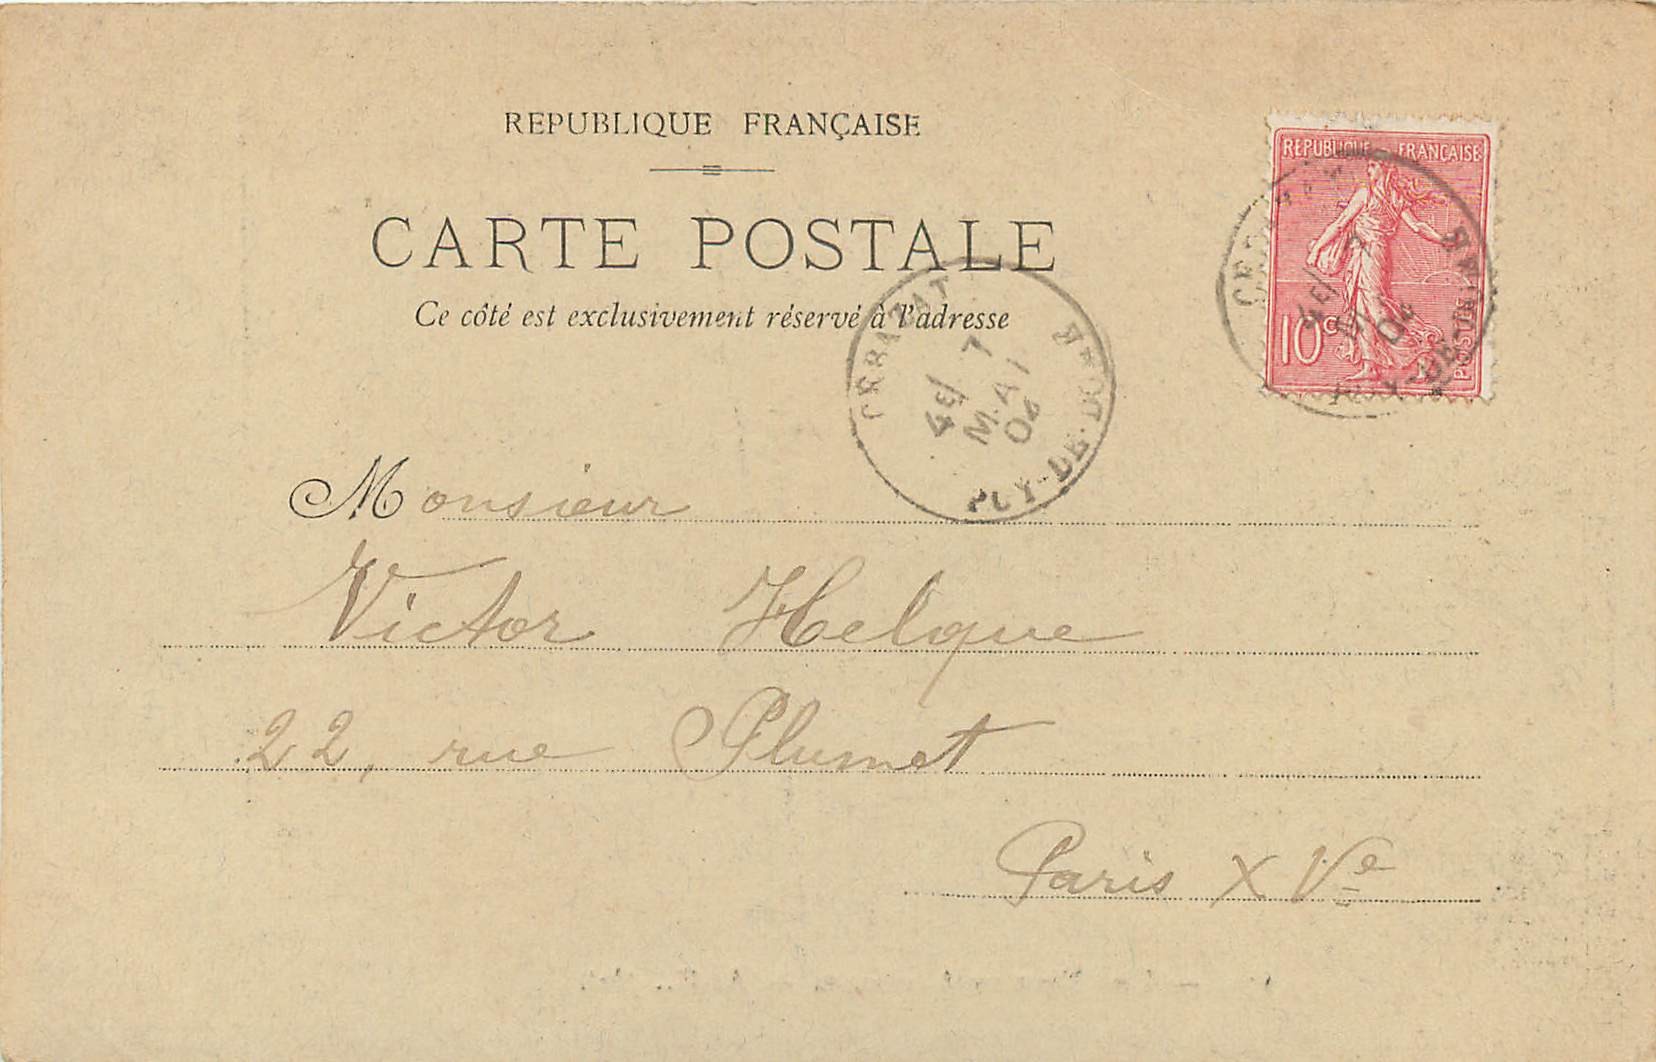 REPUBLIQUE FRANÇAISE
CARTE POSTALE
Ce côté est exclusivement réservé à l'adresse
REPUBLIQUE FRANCAISE
10c
POSTES
4E/ 7
MAI
04
PUY-DE-DOME
Monsieur
Victor Helque
22, rue Plumet
Paris XVe